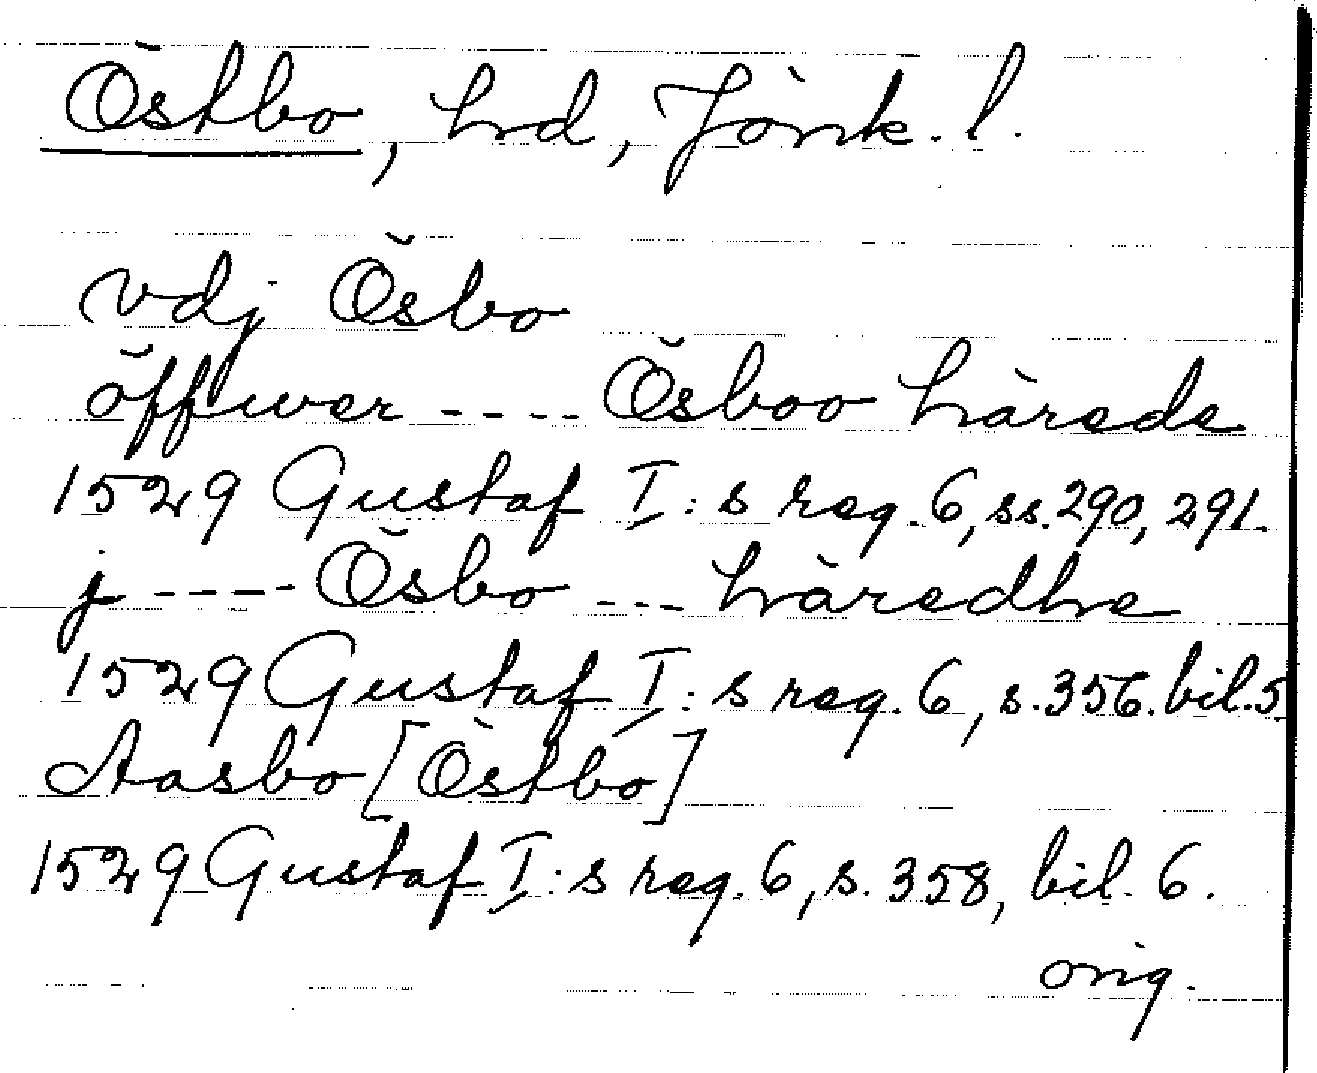 Östbo, hrd, Jönk. l.
vdj Ösbo
öffwer ---- Ösboo härede
1529 Gustaf I:s reg. 6, ss. 290, 291.
j ---- Ösbo --- häredhe
1529 Gustaf I:s reg. 6, s. 356. bil. 5
Aasbo [Östbo]
1529 Gustaf I:s reg. 6, s. 358, bil. 6.
orig.